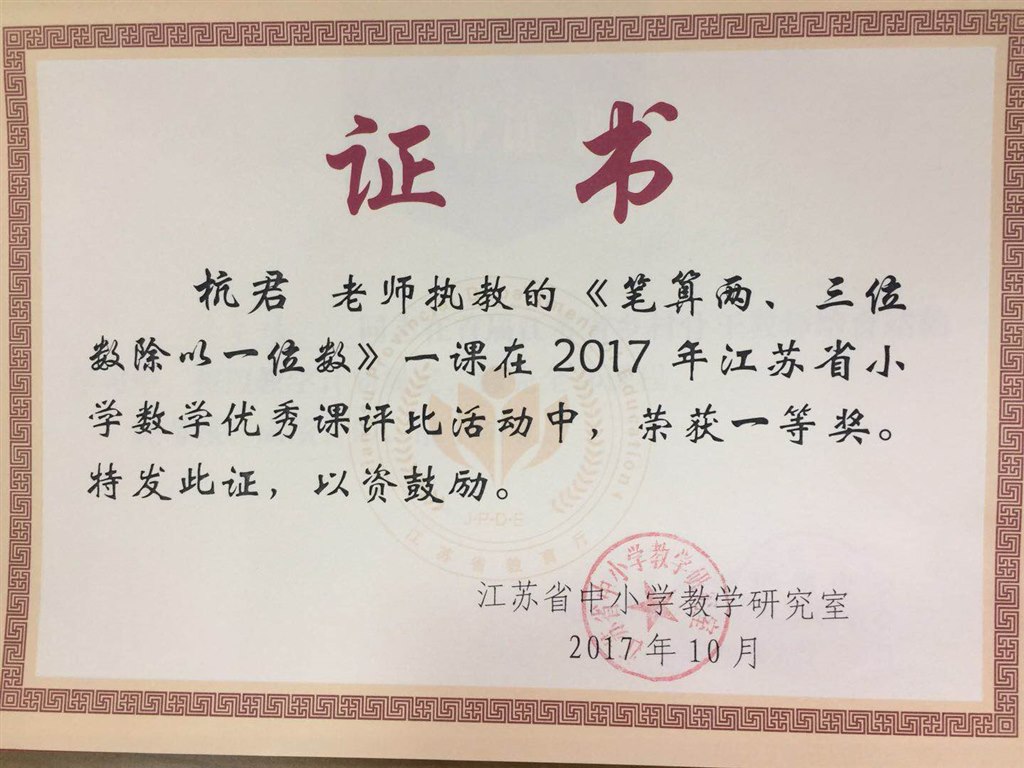 证书
杭君 老师执教的《笔算两、三位
数除以一位数》一课在 2017 年江苏省小
学数学优秀课评比活动中，荣获一等奖。
特发此证，以资鼓励。
J·P·D·E
江苏省教育厅
江苏省中小学教学研究室
2017 年 10 月
江苏省中小学教学研究室